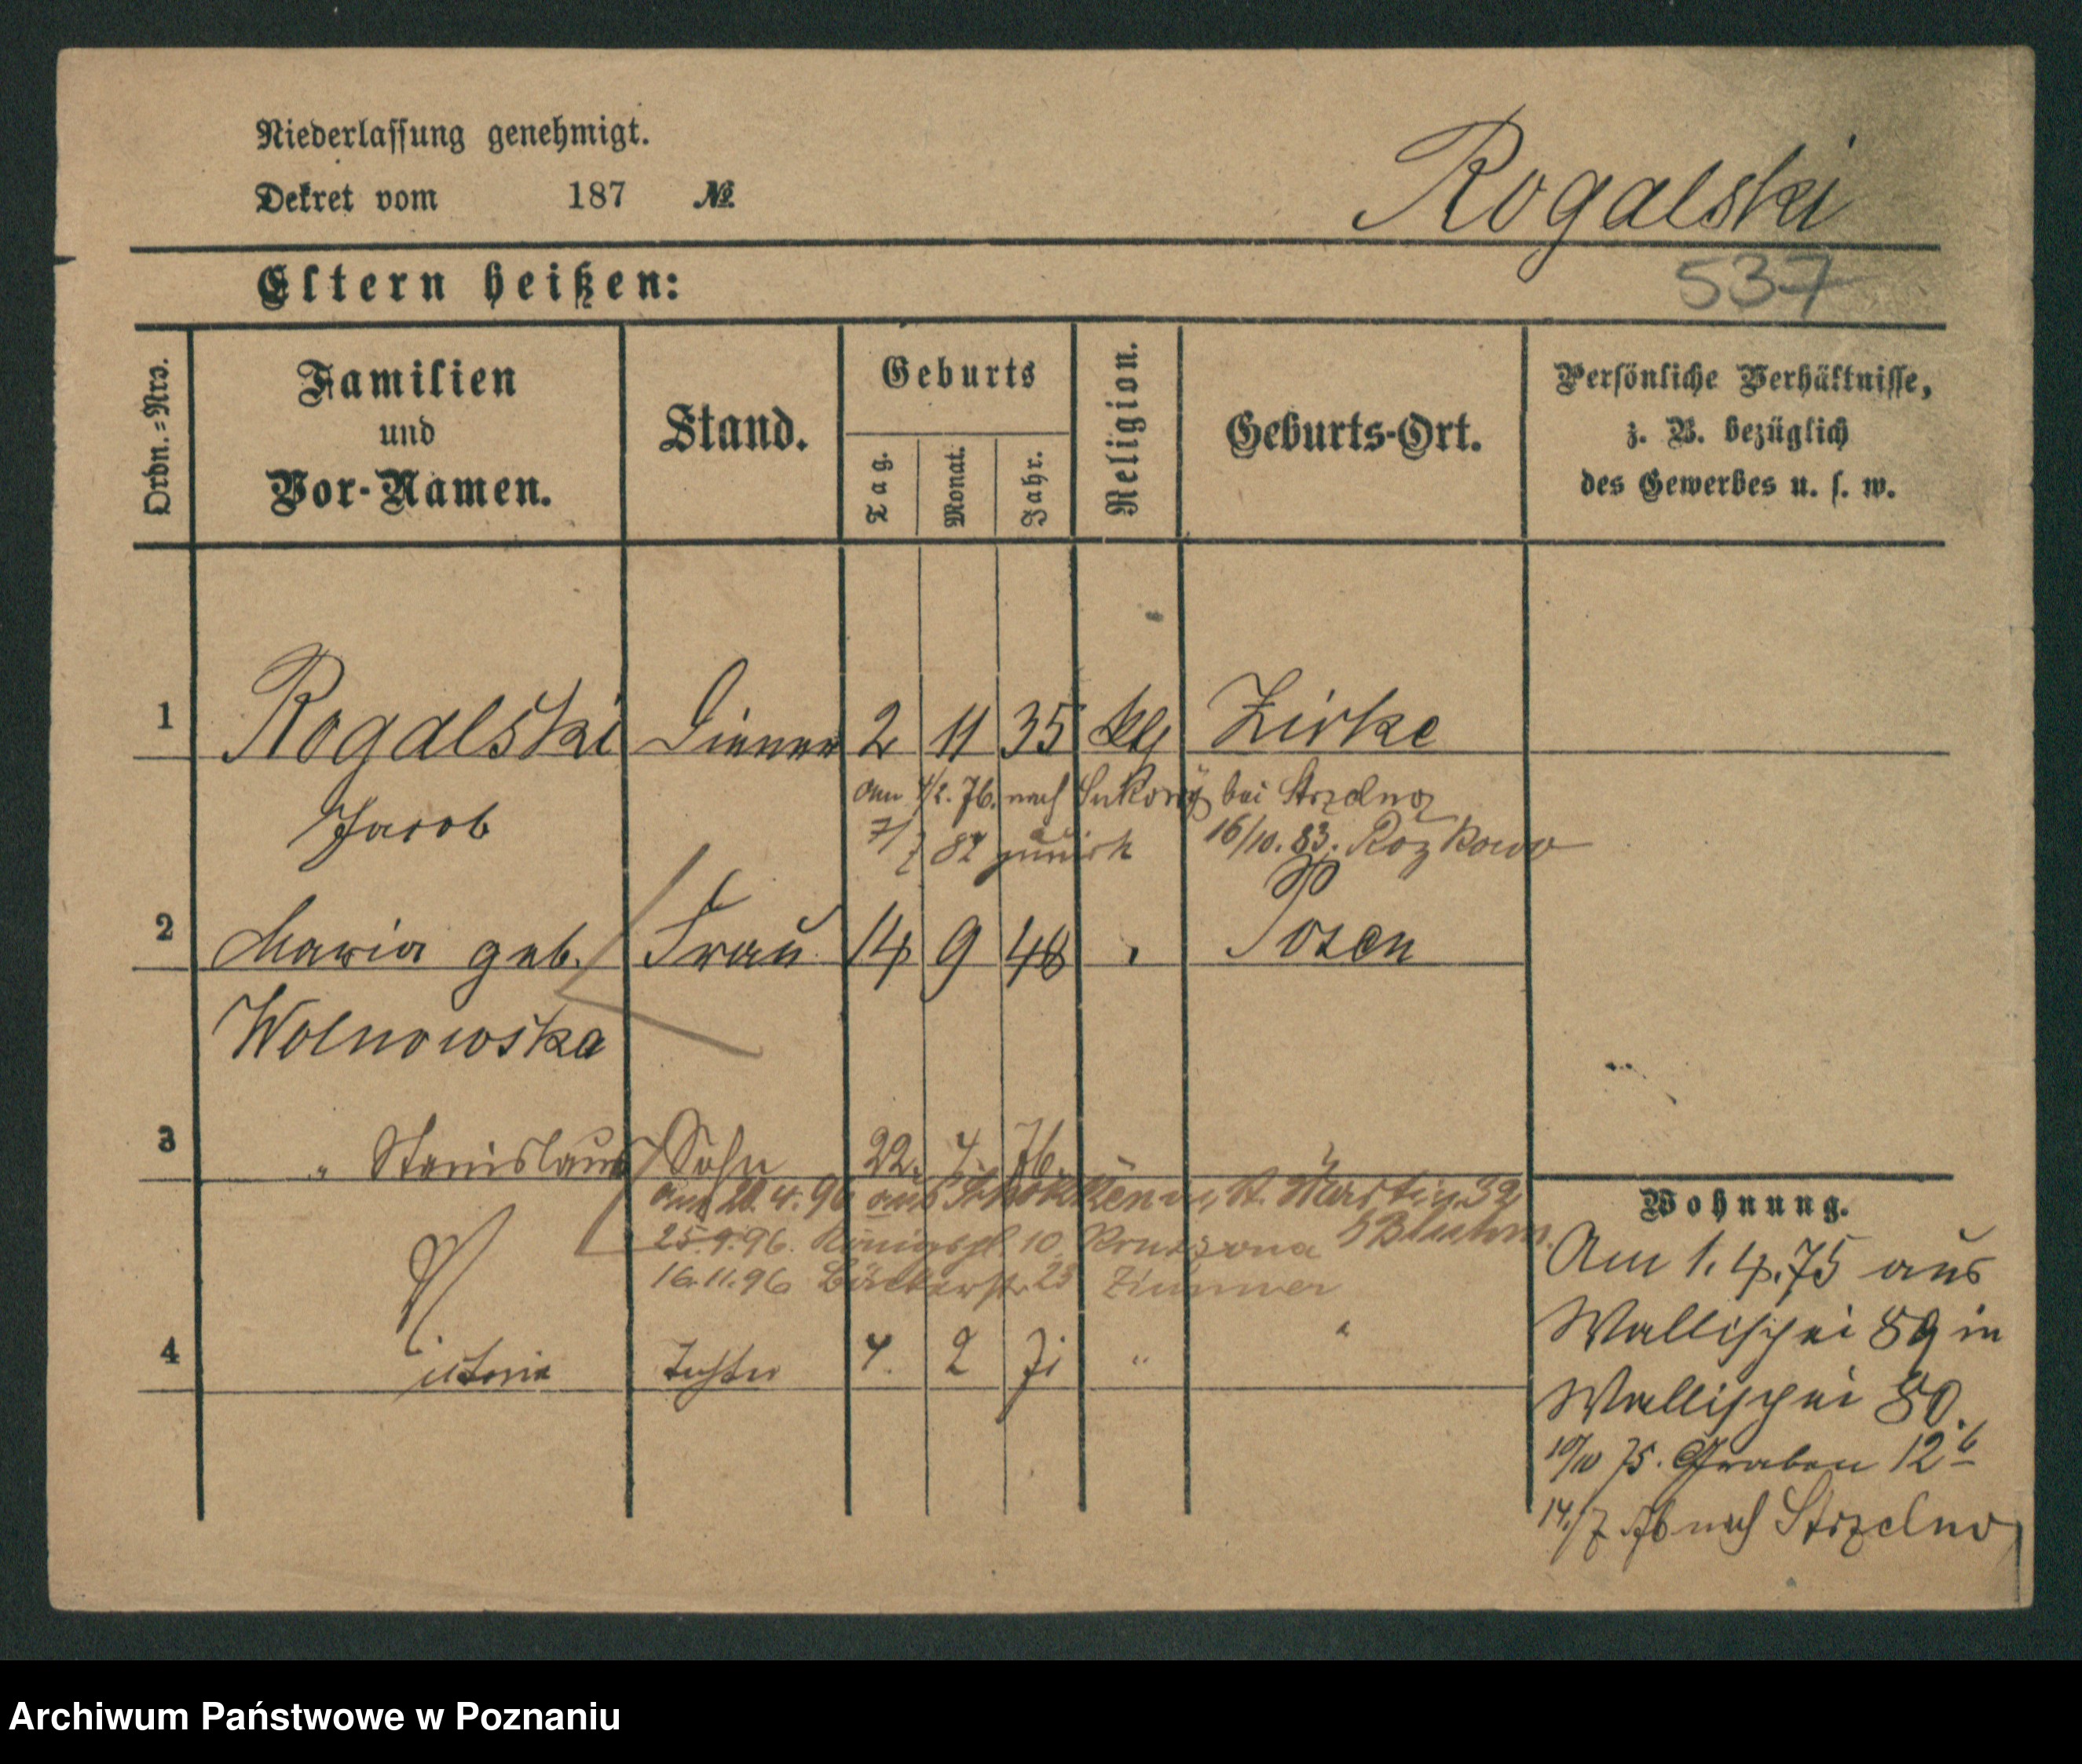 Niederlassung genehmigt.
Dekret vom 187 №
Rogalski
Eltern heißen:
537
Ordn.=Nro.
Familien
und
Vor-Namen.
Stand.
Geburts
Tag.
Monat.
Jahr.
Religion.
Geburts-Ort.
Persönliche Verhältnisse,
z. B. bezüglich
des Gewerbes u. s. w.
1 Rogalski Diener 2 11 35 ktl Zirke
Jacob
am 4/2. 76. nach bei Strzelno
7/7 82 zurück 16/10. 83.
2 Maria geb. Frau 14 9 48 Posen
Wolnowska
3 " Stanislaus Sohn 22. 4. 76.
am 20. 4. 96 aus St. Martin 32
25.9.96. Königspl. 10
16.11.96 Bäckerstr. 23 Zimmer
4 Victoria Tochter 4. 2 71 " "
Wohnung.
Am 1. 4. 75 aus
Wallischei 89 in
Wallischei 80.
10/10 75. Graben 12b
14/7 76 nach Strzelno
Archiwum Państwowe w Poznaniu